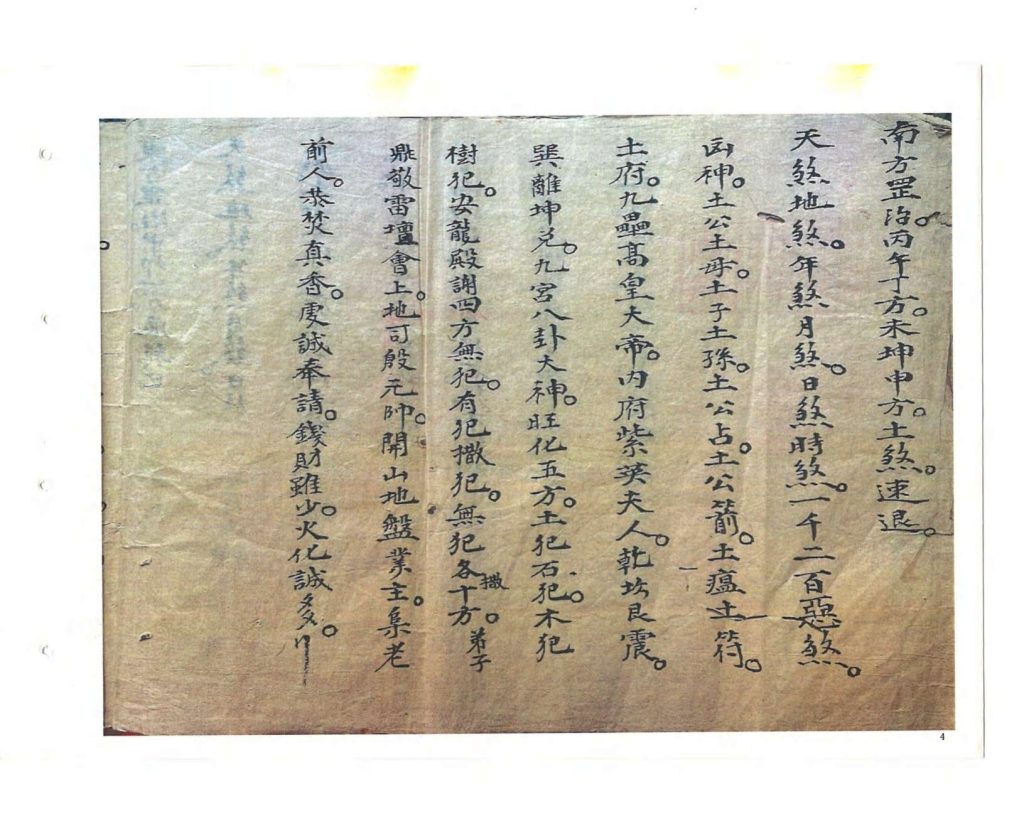 南方罡治。丙午丁方。未坤申方。土煞。速退。
天煞地煞。年煞月煞。日煞時煞。一千二百惡煞。
凶神。土公土母。土子土孫。土公占。土公箭。土瘟土符。
土府。九壘髙皇大帝。內府紫英夫人。乾坎艮震。
巽離坤兌。九宮八卦大神。旺化五方。土犯石犯。木犯
樹犯。安龍殿謝四方無犯。有犯撒犯。無犯各撒十方。弟子
鼎敬雷壇會上。地司殷元帥。開山地盤業主。集老
前人。恭焚真香。虔誠奉請。錢財雖少。火化誠多。
4